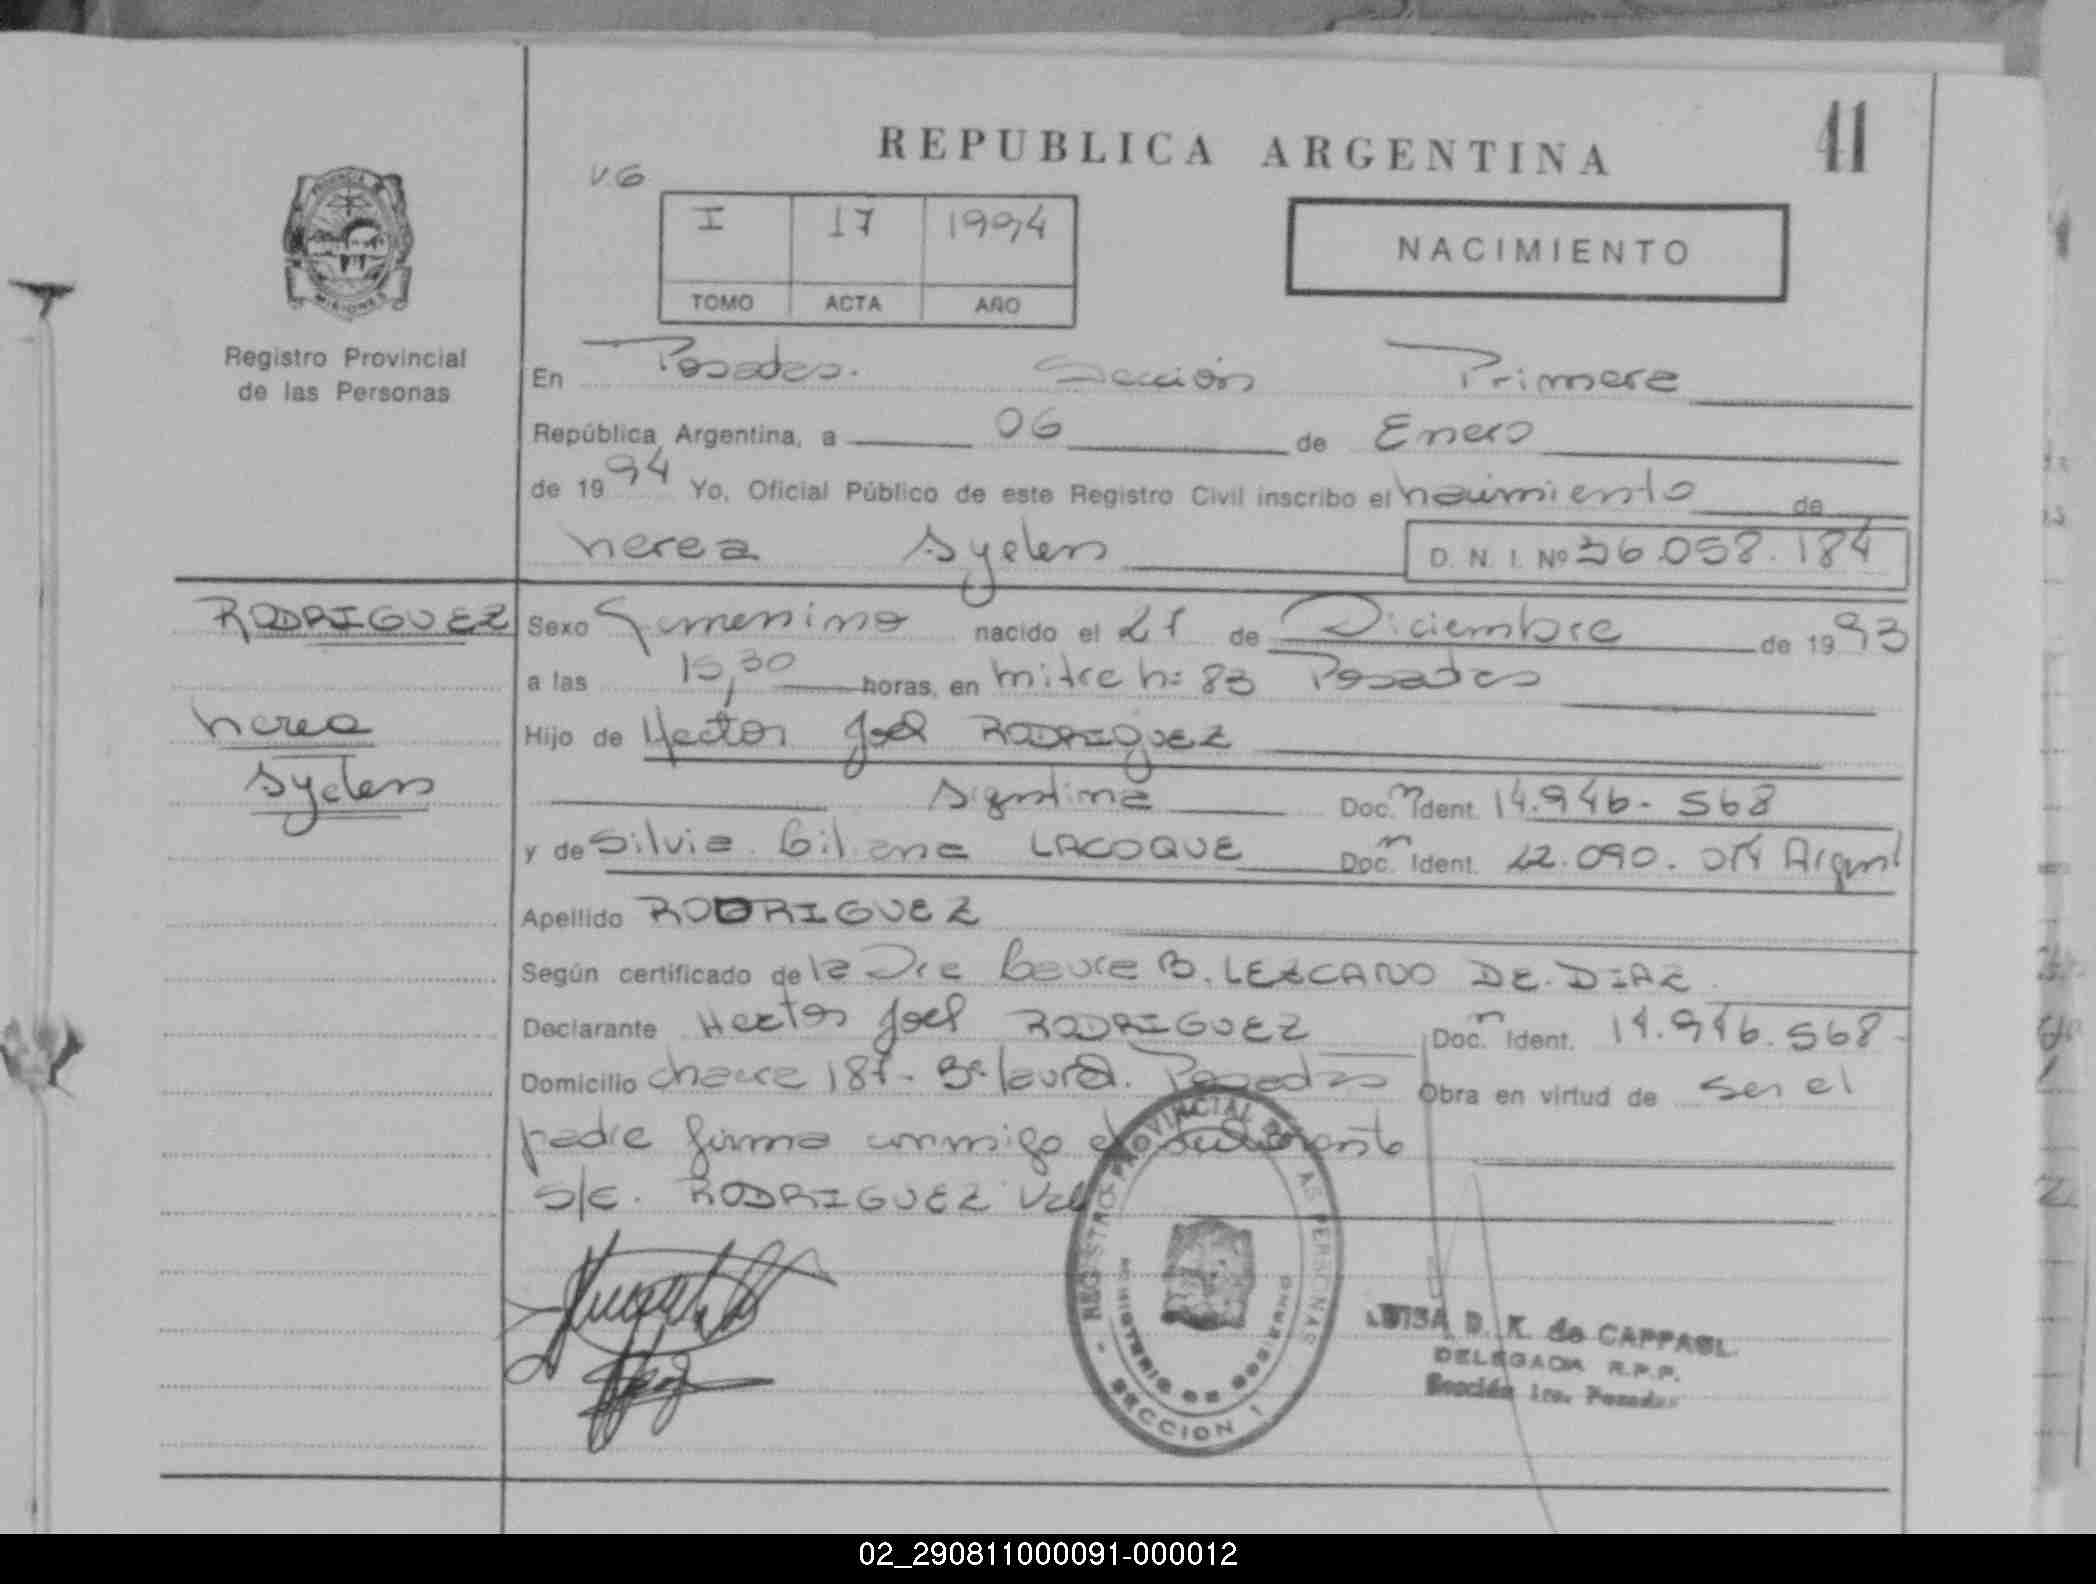 REPUBLICA ARGENTINA
41
V6
I 17 1994
TOMO ACTA AÑO
NACIMIENTO
PROVINCIA DE
MISIONES
Registro Provincial
de las Personas
En Posadas. Sección Primera
República Argentina, a 06 de Enero
de 1994 Yo, Oficial Público de este Registro Civil inscribo el nacimiento de
nerea Ayelen D. N. I. Nº 36.058.184
RODRIGUEZ
nerea
Ayelen
Sexo Femenino nacido el 21 de Diciembre de 1993
a las 15,30 horas, en mitre n: 83 Posadas
Hijo de Hector Joel RODRIGUEZ
Argentina Doc. Ident. 14.946.568
y de Silvia Liliana LACOQUE Doc. Ident. 22.090. Argent
Apellido RODRIGUEZ
Según certificado de la Dra Laura B. LEZCANO DE DIAZ
Declarante Hector Joel RODRIGUEZ Doc. Ident. 14.946.568
Domicilio chacra 181 - Bº Posadas Obra en virtud de ser el
padre firma conmigo el
S/E. RODRIGUEZ Vale
REGISTRO PROVINCIAL DE LAS PERSONAS
MINISTERIO DE GOBIERNO
- SECCION 1
LUISA D. K. de CAPPAGL.
DELEGADA R.P.P.
Sección 1ra. Posadas
02_290811000091-000012